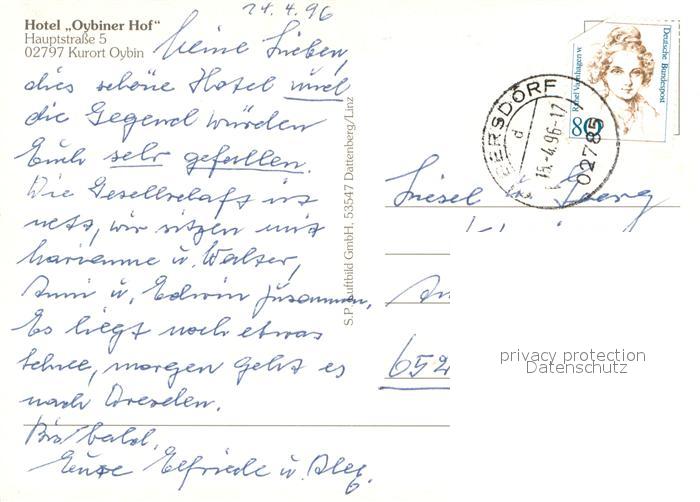 Hotel „Oybiner Hof“
Hauptstraße 5
02797 Kurort Oybin
14.4.96
Meine Lieben,
dies schöne Hotel und
die Gegend würden
Euch sehr gefallen.
Die Gesellschaft ist
nett, wir sitzen mit
Marianne u. Walter,
Anni u. Edwin zusammen.
Es liegt noch etwas
Schnee, morgen geht es
nach Dresden.
Bis bald,
Eure Elfriede u. Alex.
S.P. Luftbild GmbH, 53547 Dattenberg/Linz
Deutsche Bundespost
Rahel Varnhagen v.
80
ERSDORF
d
15.-4.96-17
02785
Liesel Georg
An
652
privacy protection
Datenschutz